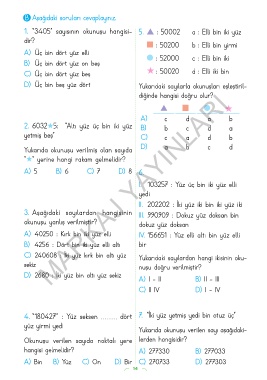 Aşağıdaki soruları cevaplayınız.
1. "3405" sayısının okunuşu hangisi-
dir?
A) Üç bin dört yüz elli
B) Üç bin dört yüz on beş
C) Üç bin dört yüz beş
D) Üç bin beş yüz dört
2. 6032★5: "Altı yüz üç bin iki yüz
yetmiş beş"
Yukarıda okunuşu verilmiş olan sayıda
"★" yerine hangi rakam gelmelidir?
A) 5 B) 6 C) 7 D) 8
3. Aşağıdaki sayılardan hangisinin
okunuşu yanlış verilmiştir?
A) 40250 : Kırk bin iki yüz elli
B) 4256 : Dört bin iki yüz elli altı
C) 240608 : İki yüz kırk bin altı yüz
sekiz
D) 2680 : İki yüz bin altı yüz seksen
4. "180427" : Yüz seksen ......... dört
yüz yirmi yedi
Okunuşu verilen sayıda noktalı yere
hangisi gelmelidir?
A) Bin B) Yüz C) On D) Bir
5. ▲ : 50002 a : Elli bin iki yüz
■ : 50200 b : Elli bin yirmi
● : 52000 c : Elli bin iki
★ : 50020 d : Elli iki bin
Yukarıdaki sayılarla okunuşları eşleştiril-
diğinde hangisi doğru olur?
▲ ■ ● ★
A) c d a b
B) b c d a
C) c a d b
D) a b c d
6.
I. 103257 : Yüz üç bin iki yüz elli
yedi
II. 202202 : İki yüz iki bin iki yüz iki
III. 990909 : Dokuz yüz doksan bin
dokuz yüz doksan
IV. 156651 : Yüz elli altı bin yüz elli
bir
Yukarıdaki sayılardan hangi ikisinin oku-
nuşu doğru verilmiştir?
A) I - II B) II - III
C) II IV D) I - IV
7. "İki yüz yetmiş yedi bin otuz üç"
Yukarıda okunuşu verilen sayı aşağıdaki-
lerden hangisidir?
A) 277330 B) 277033
C) 270733 D) 277303